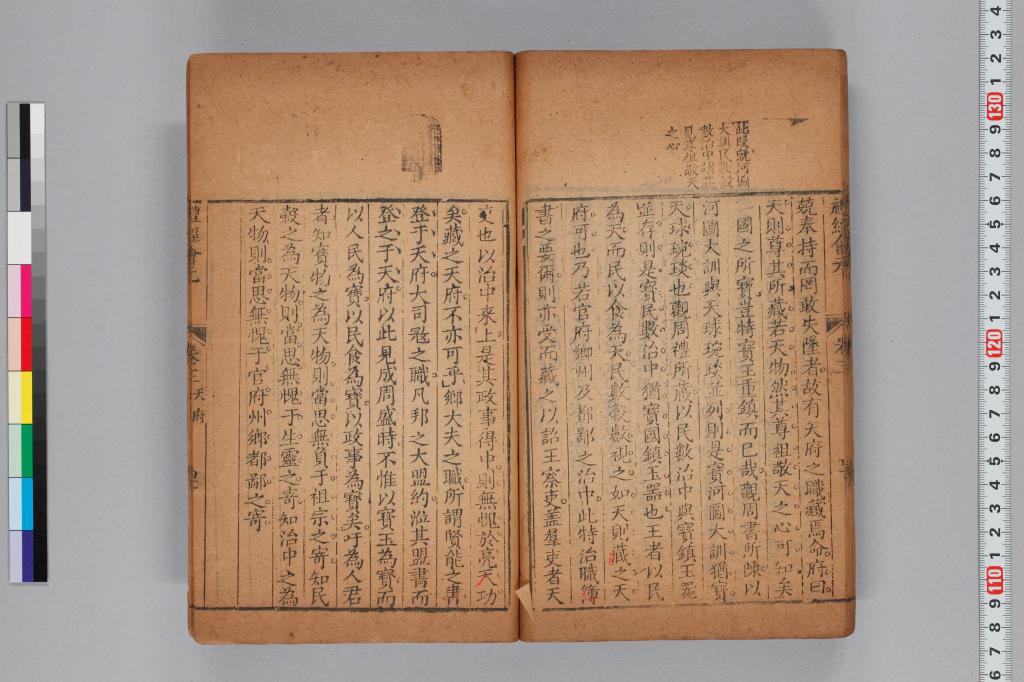 此段就河圖
大訓民數穀
數治中
見尊祖敬天
之心
兢奉持而罔敢失墜者故有天府之職藏焉命府曰
天則尊其所藏若天物然其尊祖敬天之心可知矣
國之所寶豈特寶玉重鎮而已哉觀周書所陳以
河圖大訓與天球琬琰並列則是寶河圖大訓猶寶
天球琬琰也觀周禮所藏以民數治中與寶鎮玉器
並存則是寶民數治中猶寶國鎮玉器也王者以民
為天而民以食為天民數穀數視之如天則藏之天
府可也乃若官府鄉州及都鄙之治中此特治職簿
書之要爾則亦受而藏之以詔王察吏蓋羣吏者天
吏也以治中來上是其政事得中則無愧於亮天功
矣藏之天府不亦可乎鄉大夫之職所謂賢能之書
登于天府大司寇之職凡邦之大盟約涖其盟書而
登之于天府以此見成周盛時不惟以寶玉為寶而
以人民為寶以民食為寶以政事為寶矣吁為人君
者知寶物之為天物則當思無負于祖宗之寄知民
穀之為天物則當思無愧于生靈之寄知治中之為
天物則當思無愧于官府州鄉都鄙之寄
禮經會元 卷三 天府